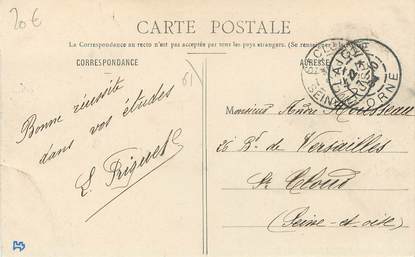 20 €
CARTE POSTALE
La Correspondance au recto n'est pas acceptée par tous les pays étrangers. (Se renseigner à la
CORRESPONDANCE
ADRESSE
Bonne réussite
dans vos études
L. Riquet
Monsieur André Rousseau
26 Bd. de Versailles
St Cloud
(Seine-et-oise)
ST CLOUD
SEINE
ORNE